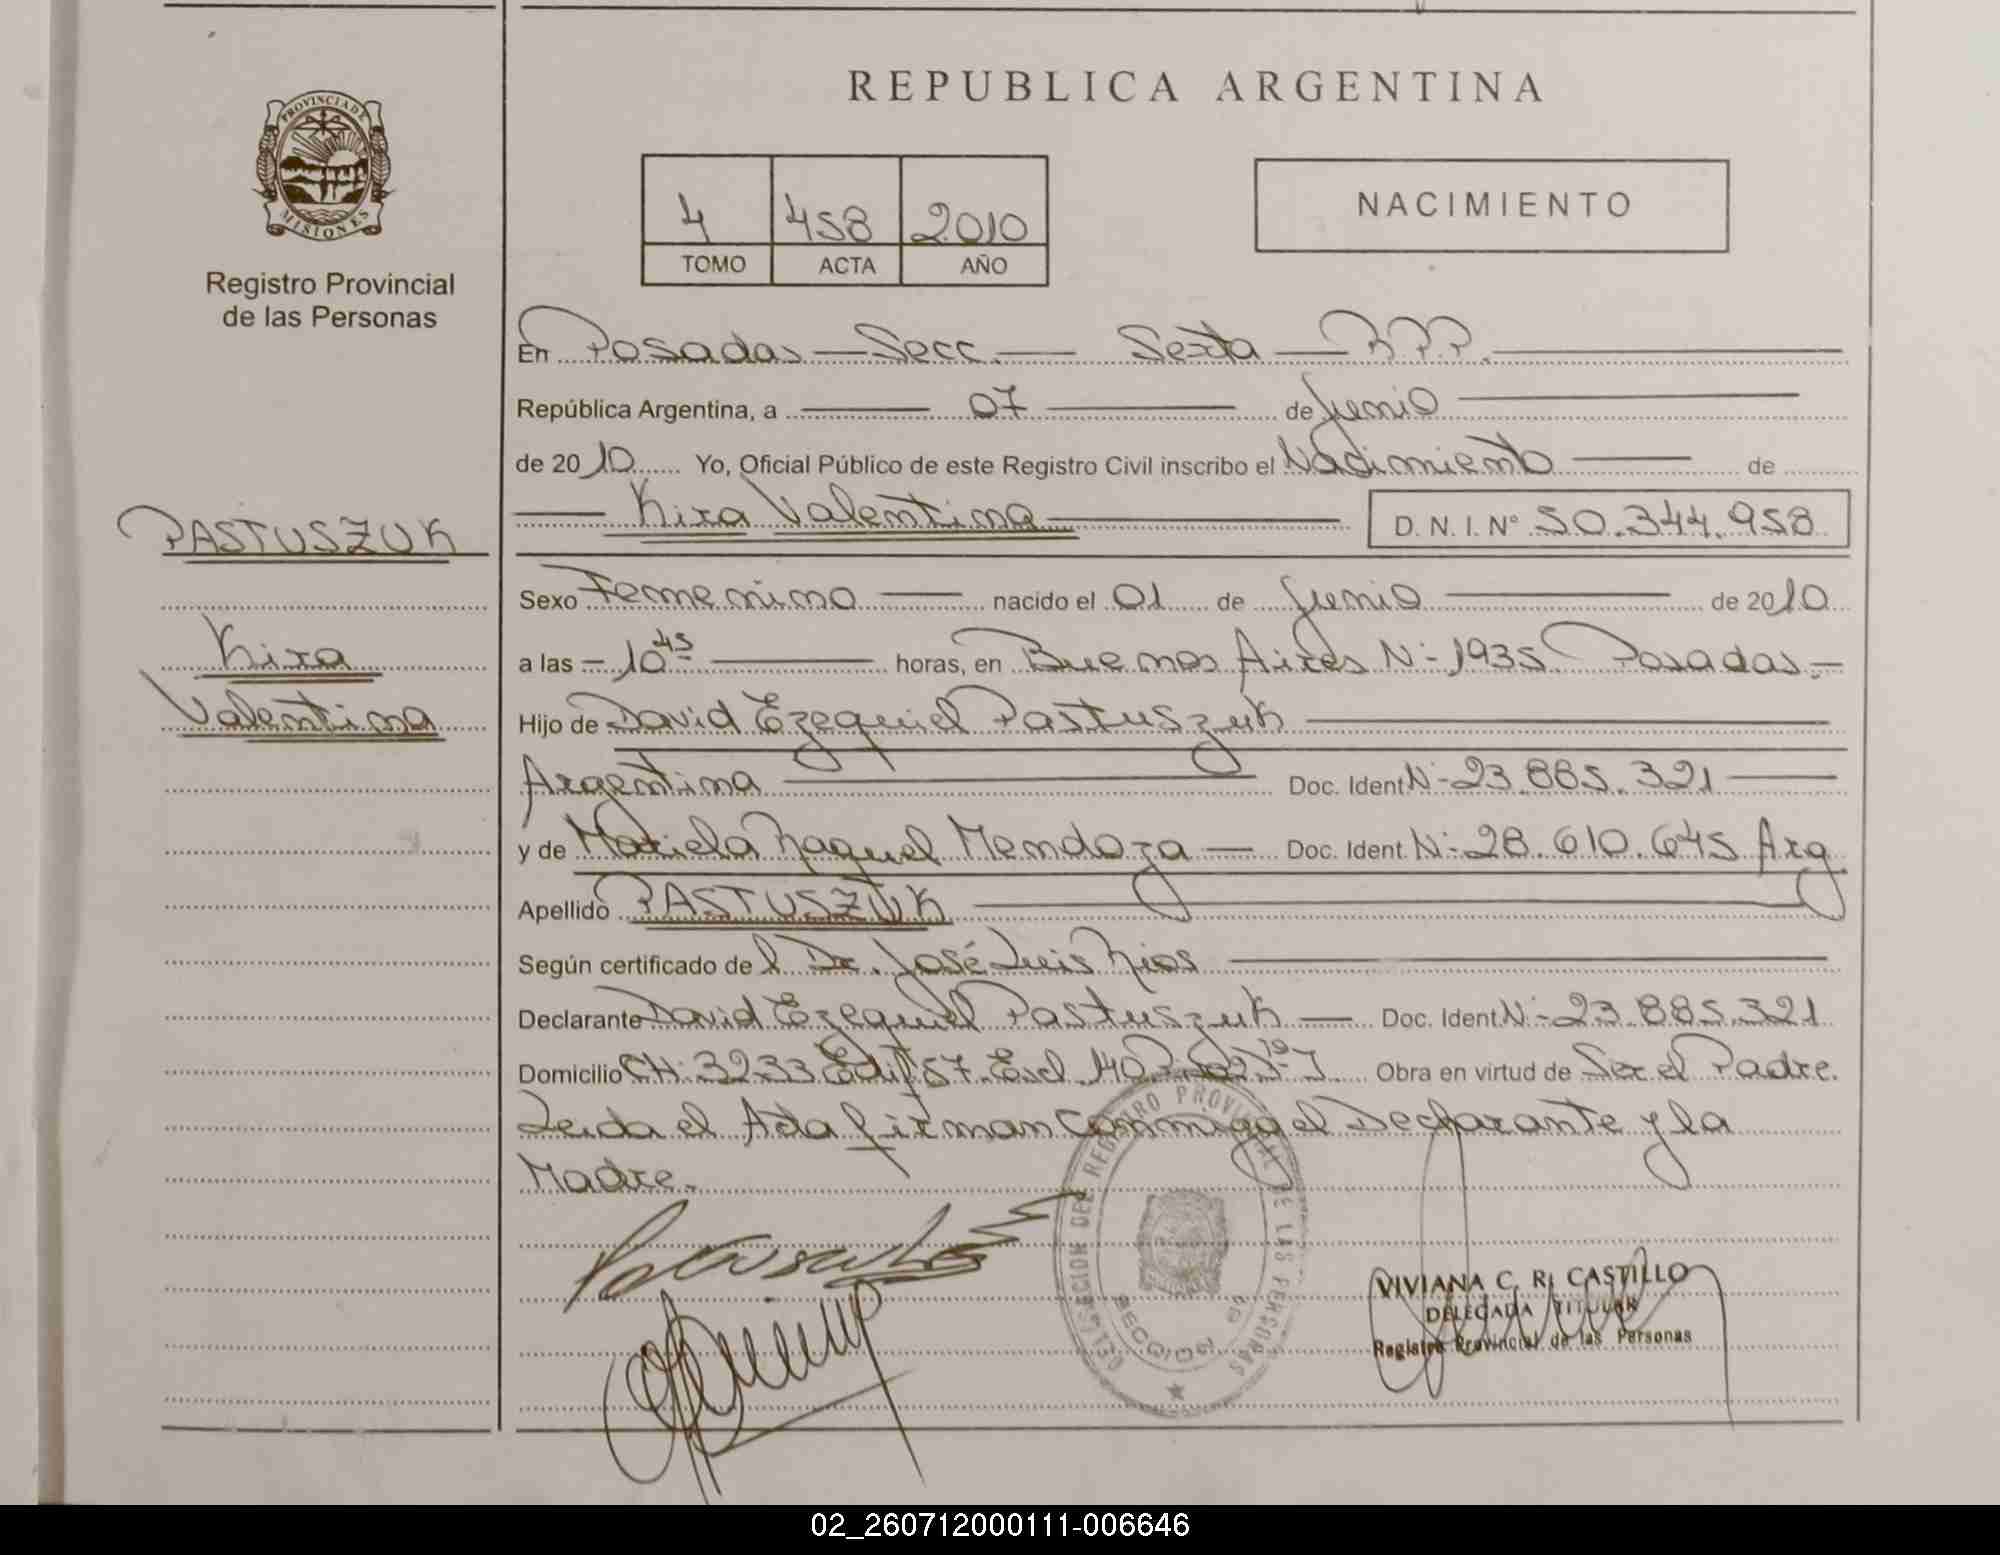 REPUBLICA ARGENTINA
PROVINCIA DE MISIONES
Registro Provincial
de las Personas
4 458 2010
TOMO ACTA AÑO
NACIMIENTO
En Posadas — Secc. — Sexta — R.P.P.
República Argentina, a 07 de Junio
de 2010 Yo, Oficial Público de este Registro Civil inscribo el Nacimiento de
Kira Valentina D. N. I. N° 50.344.958
PASTUSZUK
Kira
Valentina
Sexo Femenino nacido el 01 de Junio de 2010
a las 10 45 horas, en Buenos Aires N° 1935 Posadas.
Hijo de David Ezequiel Pastuszuk
Argentina Doc. Ident N° 23.885.321
y de Mariela Raquel Mendoza Doc. Ident. N° 28.610.645 Arg
Apellido PASTUSZUK
Según certificado del Dr. José Luis Rios
Declarante David Ezequiel Pastuszuk Doc. Ident N° 23.885.321
Domicilio CH. 3233 Edif 57 Esc. 140 Obra en virtud de Ser el Padre.
Leida el Acta firman conmigo el Declarante y la
Madre.
DELEGACION DEL REGISTRO PROVINCIAL DE LAS PERSONAS
SECCION 6
VIVIANA C. R. CASTILLO
DELEGADA TITULAR
Registro Provincial de las Personas
02_260712000111-006646